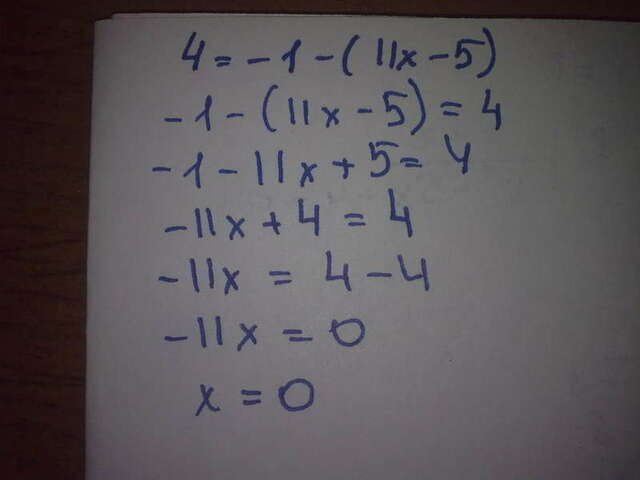 4 = -1 - (11x - 5)
-1 - (11x - 5) = 4
-1 - 11x + 5 = 4
-11x + 4 = 4
-11x = 4 - 4
-11x = 0
x = 0